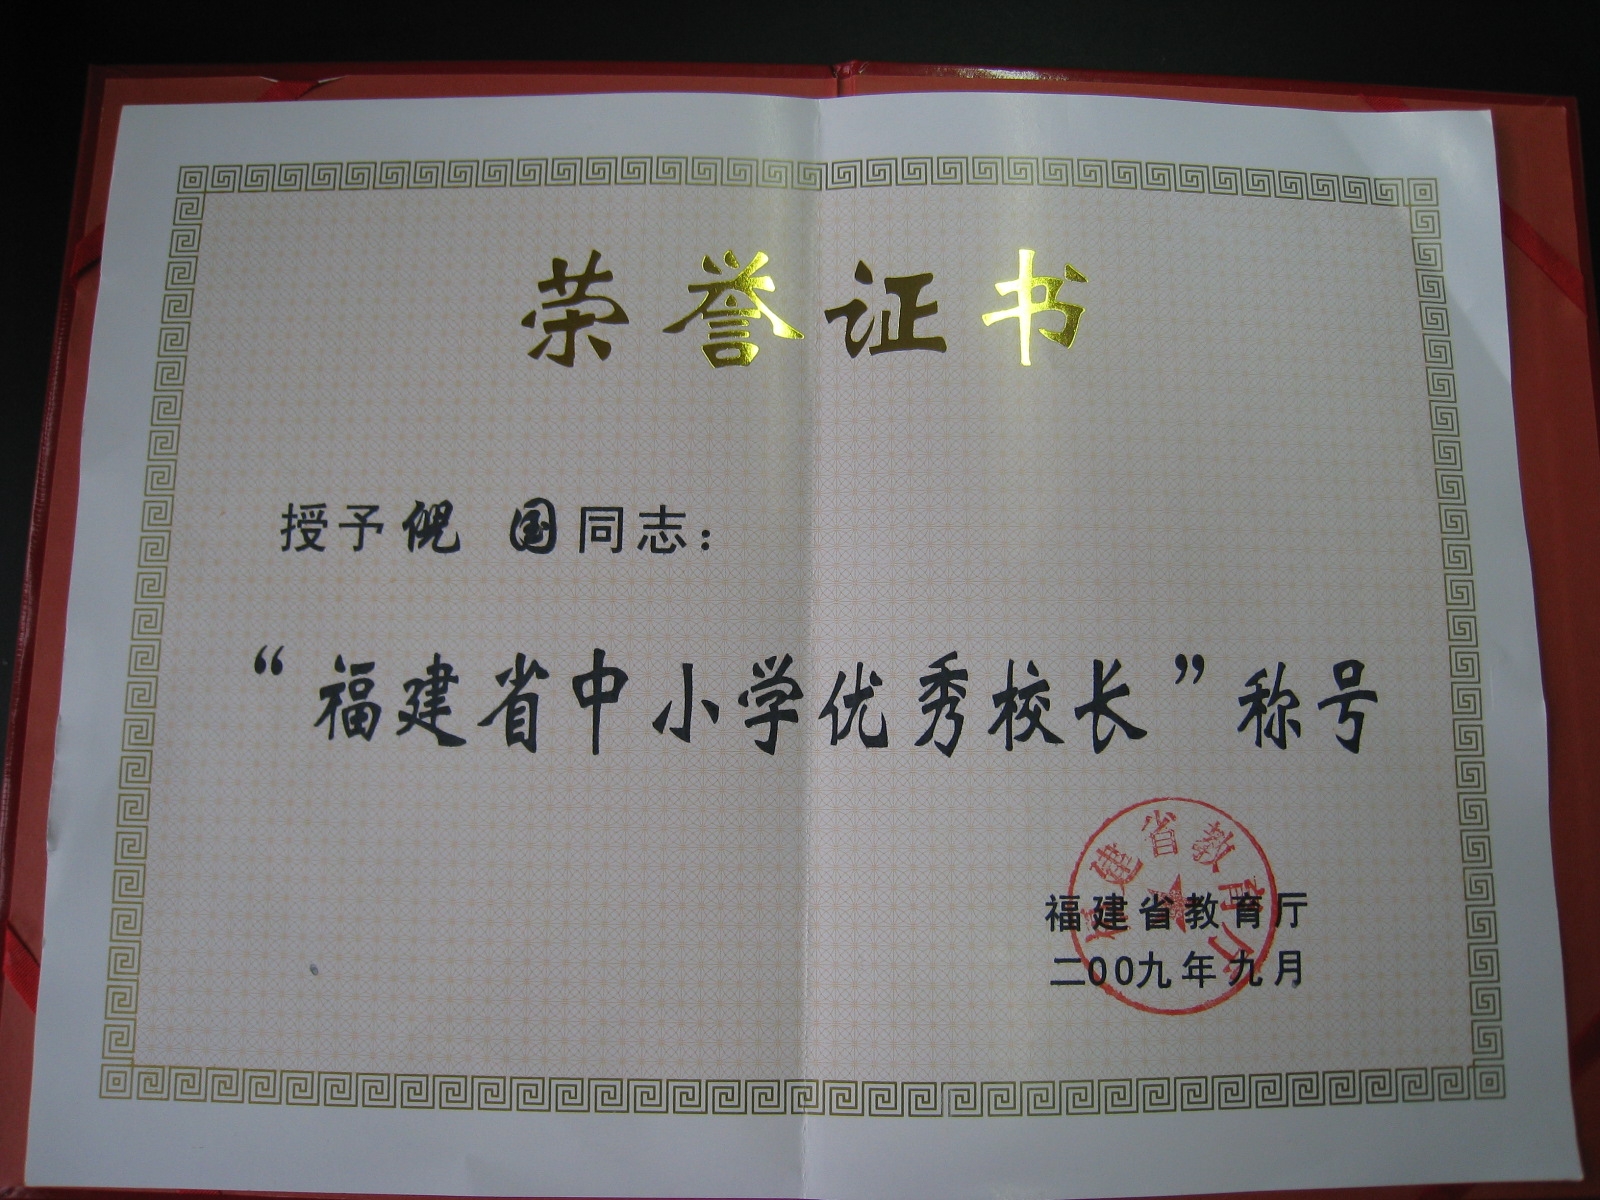 荣誉证书
授予倪 国同志：
“福建省中小学优秀校长”称号
福建省教育厅
福建省教育厅
二00九年九月